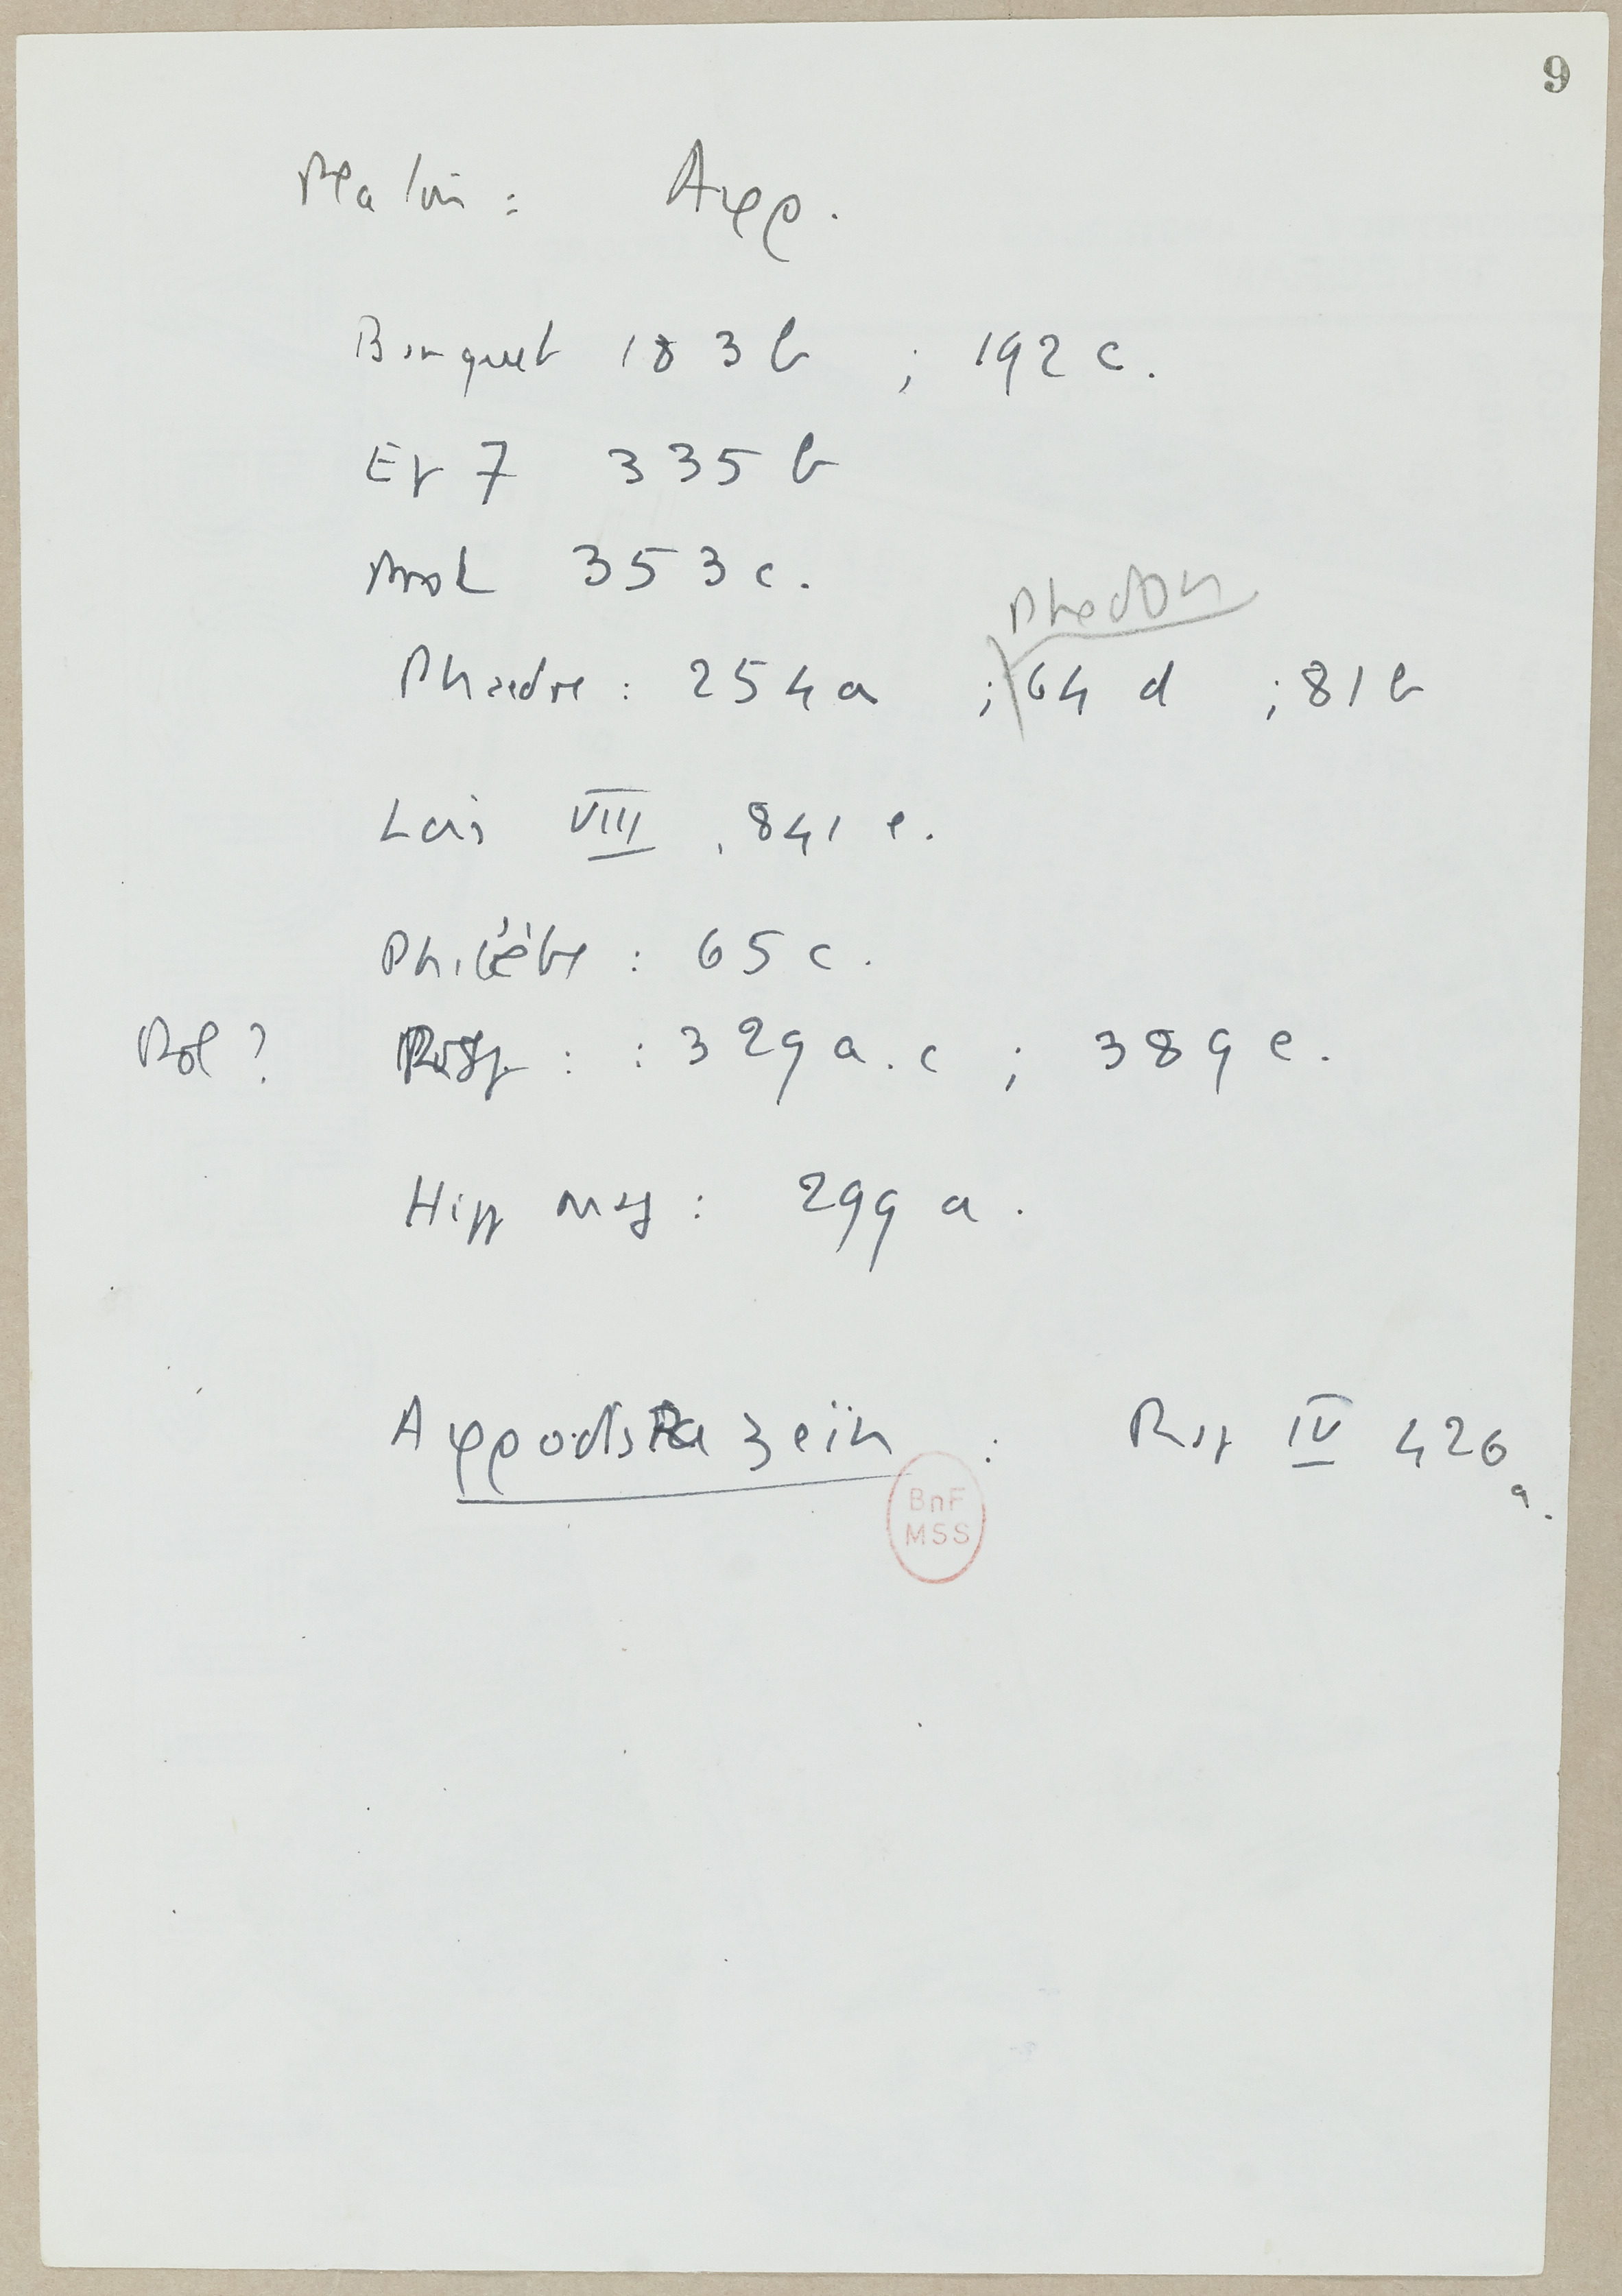 9
Platon : Αφρ.
Banquet 183 b ; 192 c.
Ep 7 335 b
Prot 353 c.
Phedon
Phaedre : 254 a ; 64 d ; 81 b
Lois VIII, 841 e.
Philèbe : 65 c.
Pol ? Rep : : 329 a. c ; 389 e.
Hipp maj : 299 a.
Αφροdisiazein : Rep IV 426 a.
BnF
MSS